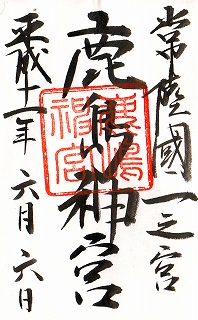 常陸國一之宮
鹿島神宮
鹿嶋
神宮
平成十一年 六月六日